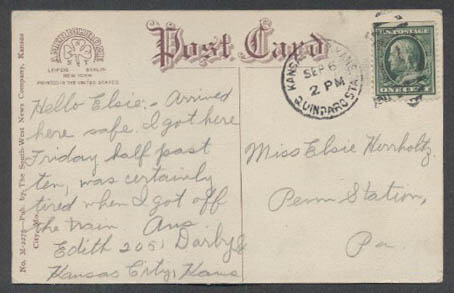 Post Card
LEIPZIG BERLIN
NEW YORK
PRINTED IN THE UNITED STATES
Hello Elsie:- Arrived
here safe. I got here
Friday half past
ten, was certainly
tired when I got off
the train Ans
Edith 2051 Darby
Kansas City, Kans
No. M-2272—Pub. by The South-West News Company, Kansas
City, Mo.
KANSAS CITY, KANS.
SEP 6
2 PM
QUINDARO STA.
U.S. POSTAGE
ONE CENT
Miss Elsie Herrholtz
Penn Station,
Pa.